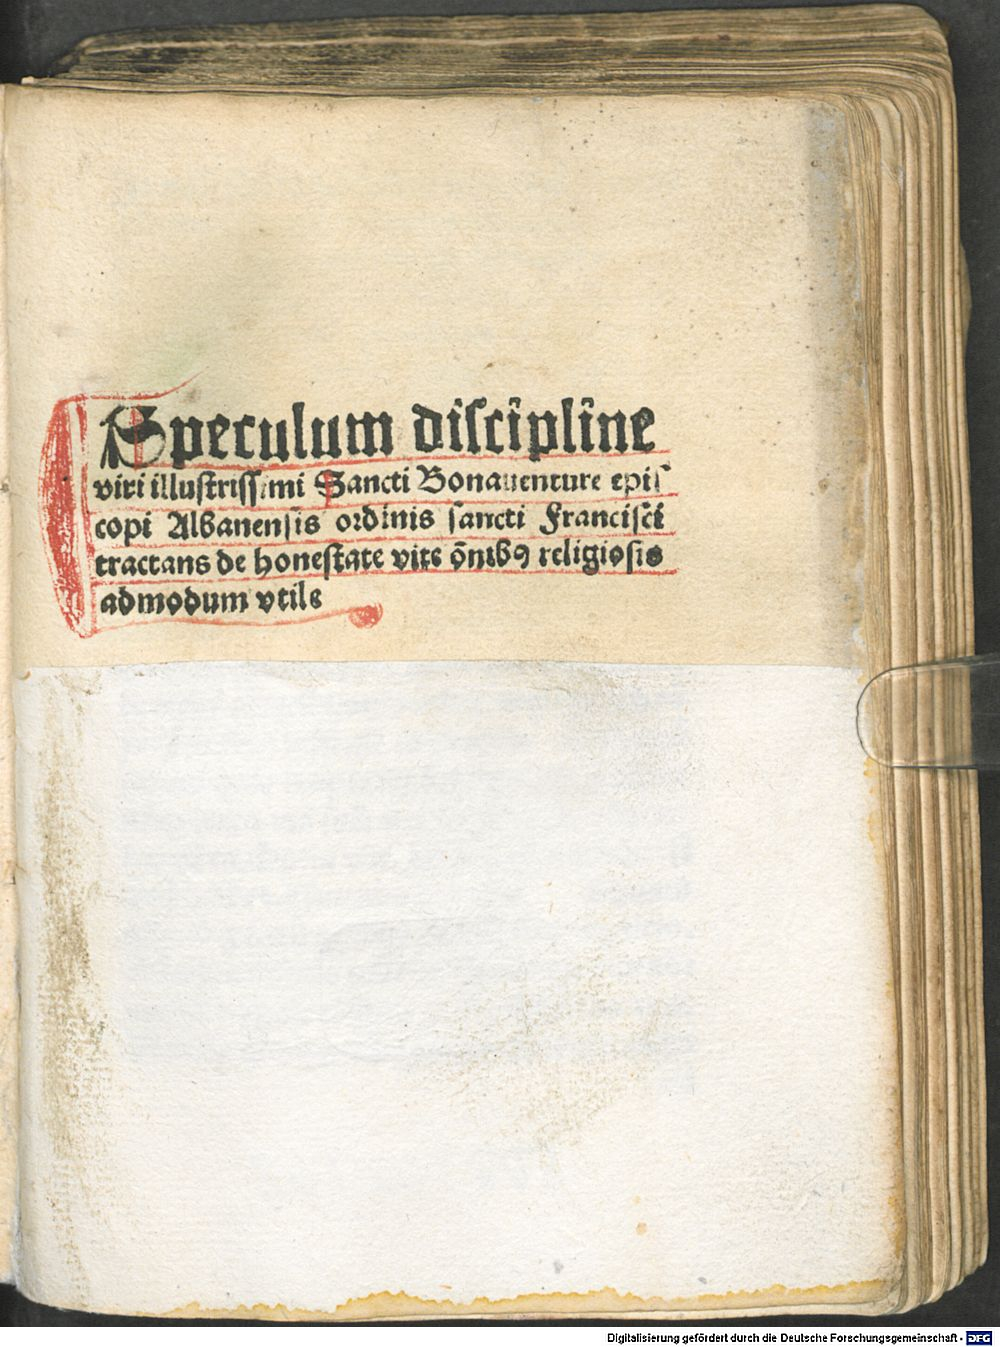 Speculum discipline
viri illustrissimi Sancti Bonauenture epis
copi Albanensis ordinis sancti Francisci
tractans de honestate vite õnibꝯ religiosis
admodum vtile
Digitalisierung gefördert durch die Deutsche Forschungsgemeinschaft - DFG